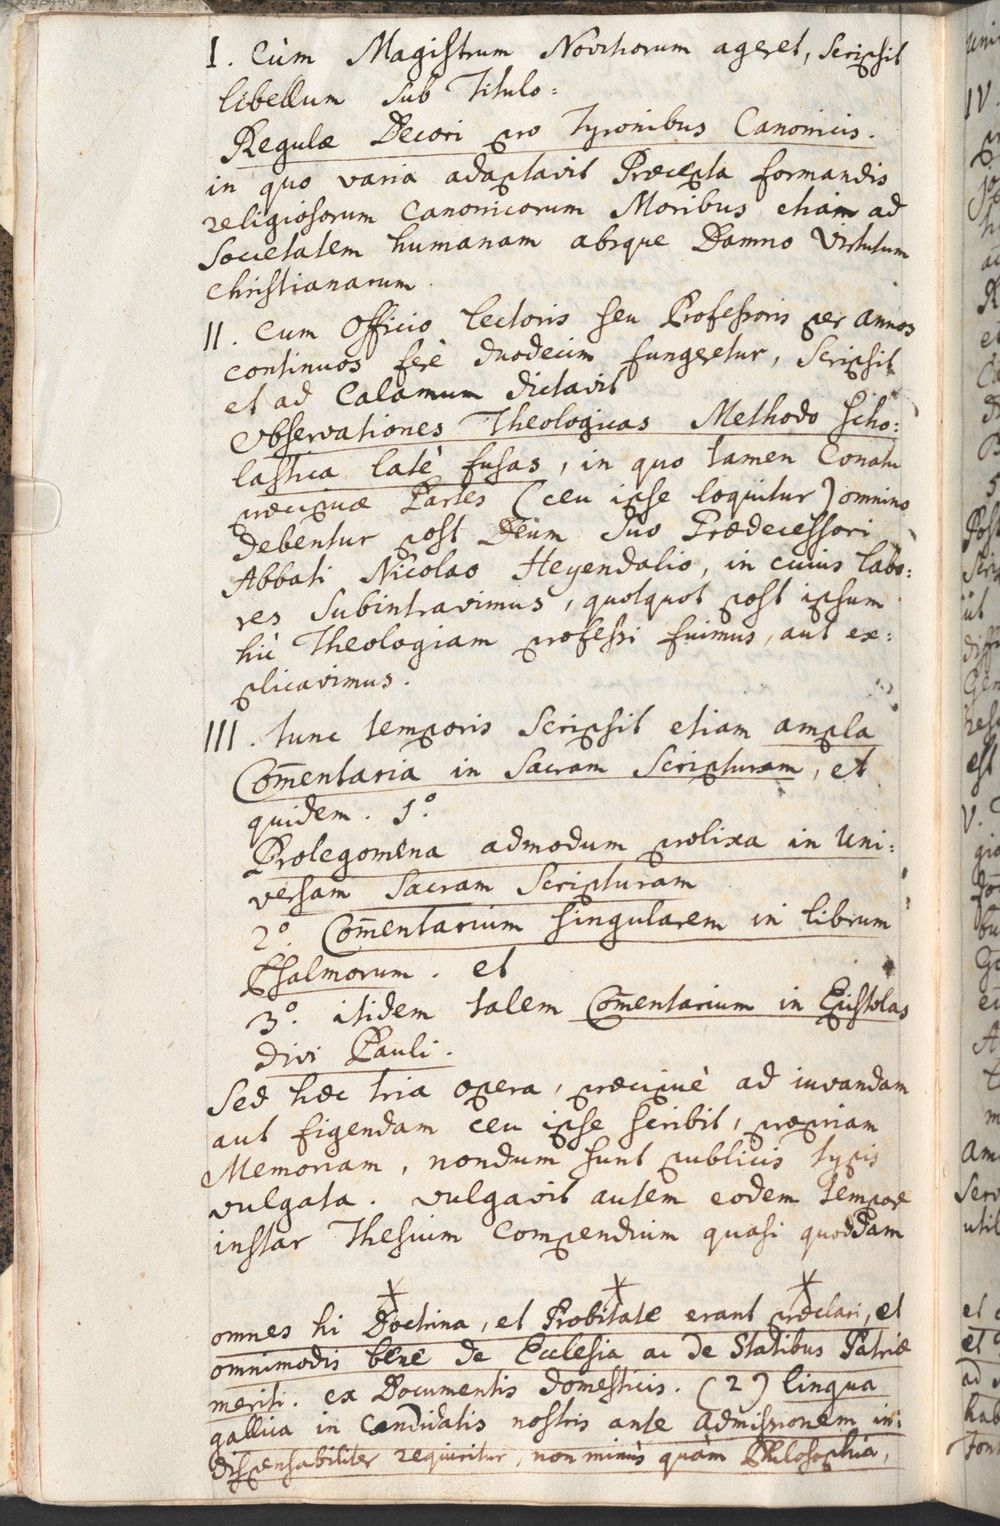 I. Cùm Magistrum Novitiorum ageret, scripsit
libellum sub Titulo:
Regulæ Decori pro Tyronibus Canonicis.
in quo varia adaptavit Præcepta formandis
religiosorum Canonicorum Moribus etiam ad
Societatem humanam absque Damno Virtutum
christianarum.
II. Cum Officio Lectoris seu Professoris per annos
continuos ferè duodecim fungeretur, scripsit
et ad Calamum dictavit
Observationes Theologicas Methodo scho:
lastica latè fusas, in quo tamen Conatu
præcipuæ Partes (ceu ipse loquitur) omnino
debentur post Deum suo Prædecessori
Abbati Nicolao Heyendalio, in cuius labo:
res subintravimus, quotquot post ipsum
hic Theologiam professi fuimus, aut ex:
plicavimus.
III. tunc temporis scripsit etiam ampla
Com̄entaria in Sacram Scripturam, et
quidem. 1º.
Prolegomena admodum prolixa in Uni:
versam Sacram Scripturam
2º. Com̄entarium singularem in librum
Psalmorum. et
3º. itidem talem Com̄entarium in Epistolas
divi Pauli.
Sed hæc tria opera, præcipuè ad iuvandam
aut figendam ceu ipse scribit, propriam
Memoriam, nondum sunt publicis typis
vulgata. vulgavit autem eodem tempore
instar Thesium Compendium quasi quoddam
omnes hi Doctrina, et Probitate erant præclari, et
omnimodis bene de Ecclesia ac de Statibus Patriæ
meriti. ex Documentis domesticis. (2) lingua
gallica in Candidatis nostris ante admissionem in:
dispensabiliter requiritur, non minùs quàm Philosophia,